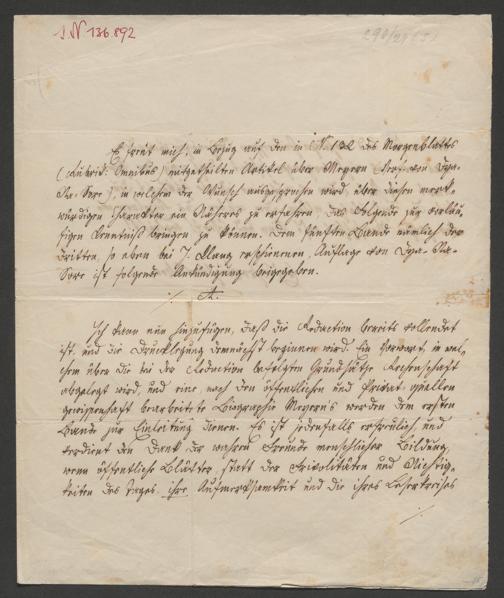 I.N 136.892
290/29
Es freut mich, in Bezug auf den in N. 122 des Morgenblattes
(Rubrik: Omnibus) mitgetheilten Artikel über Meyern (Verf. von Dya-
Na-Sore), in welchem der Wunsch ausgesprochen wird, über diesen merk-
würdigen Charakter ein Näheres zu erfahren, das Folgende zur vorläu-
figen Kenntniß bringen zu können. Dem fünften Bande nämlich der
dritten, so eben bei J. Klang erschienenen, Auflage von Dya-Na-
Sore ist folgende Ankündigung beigegeben.
./. A.
Ich kann nun hinzufügen, daß die Redaction bereits vollendet
ist, und die Drucklegung demnächst beginnen wird. Ein Vorwort, in wel-
chem über die bei der Redaction befolgten Grundsätze Rechenschaft
abgelegt wird, und eine nach den öffentlichen und Privat-Quellen
gewissenhaft bearbeitete Biographie Meyern's werden dem ersten
Bande zur Einleitung dienen. Es ist jedenfalls erfreulich und
verdient den Dank der wahren Freunde menschlicher Bildung,
wenn öffentliche Blätter statt der Frivolitäten und Nichtig-
keiten des Tages ihre Aufmerksamkeit und die ihres Leserkreises
./.